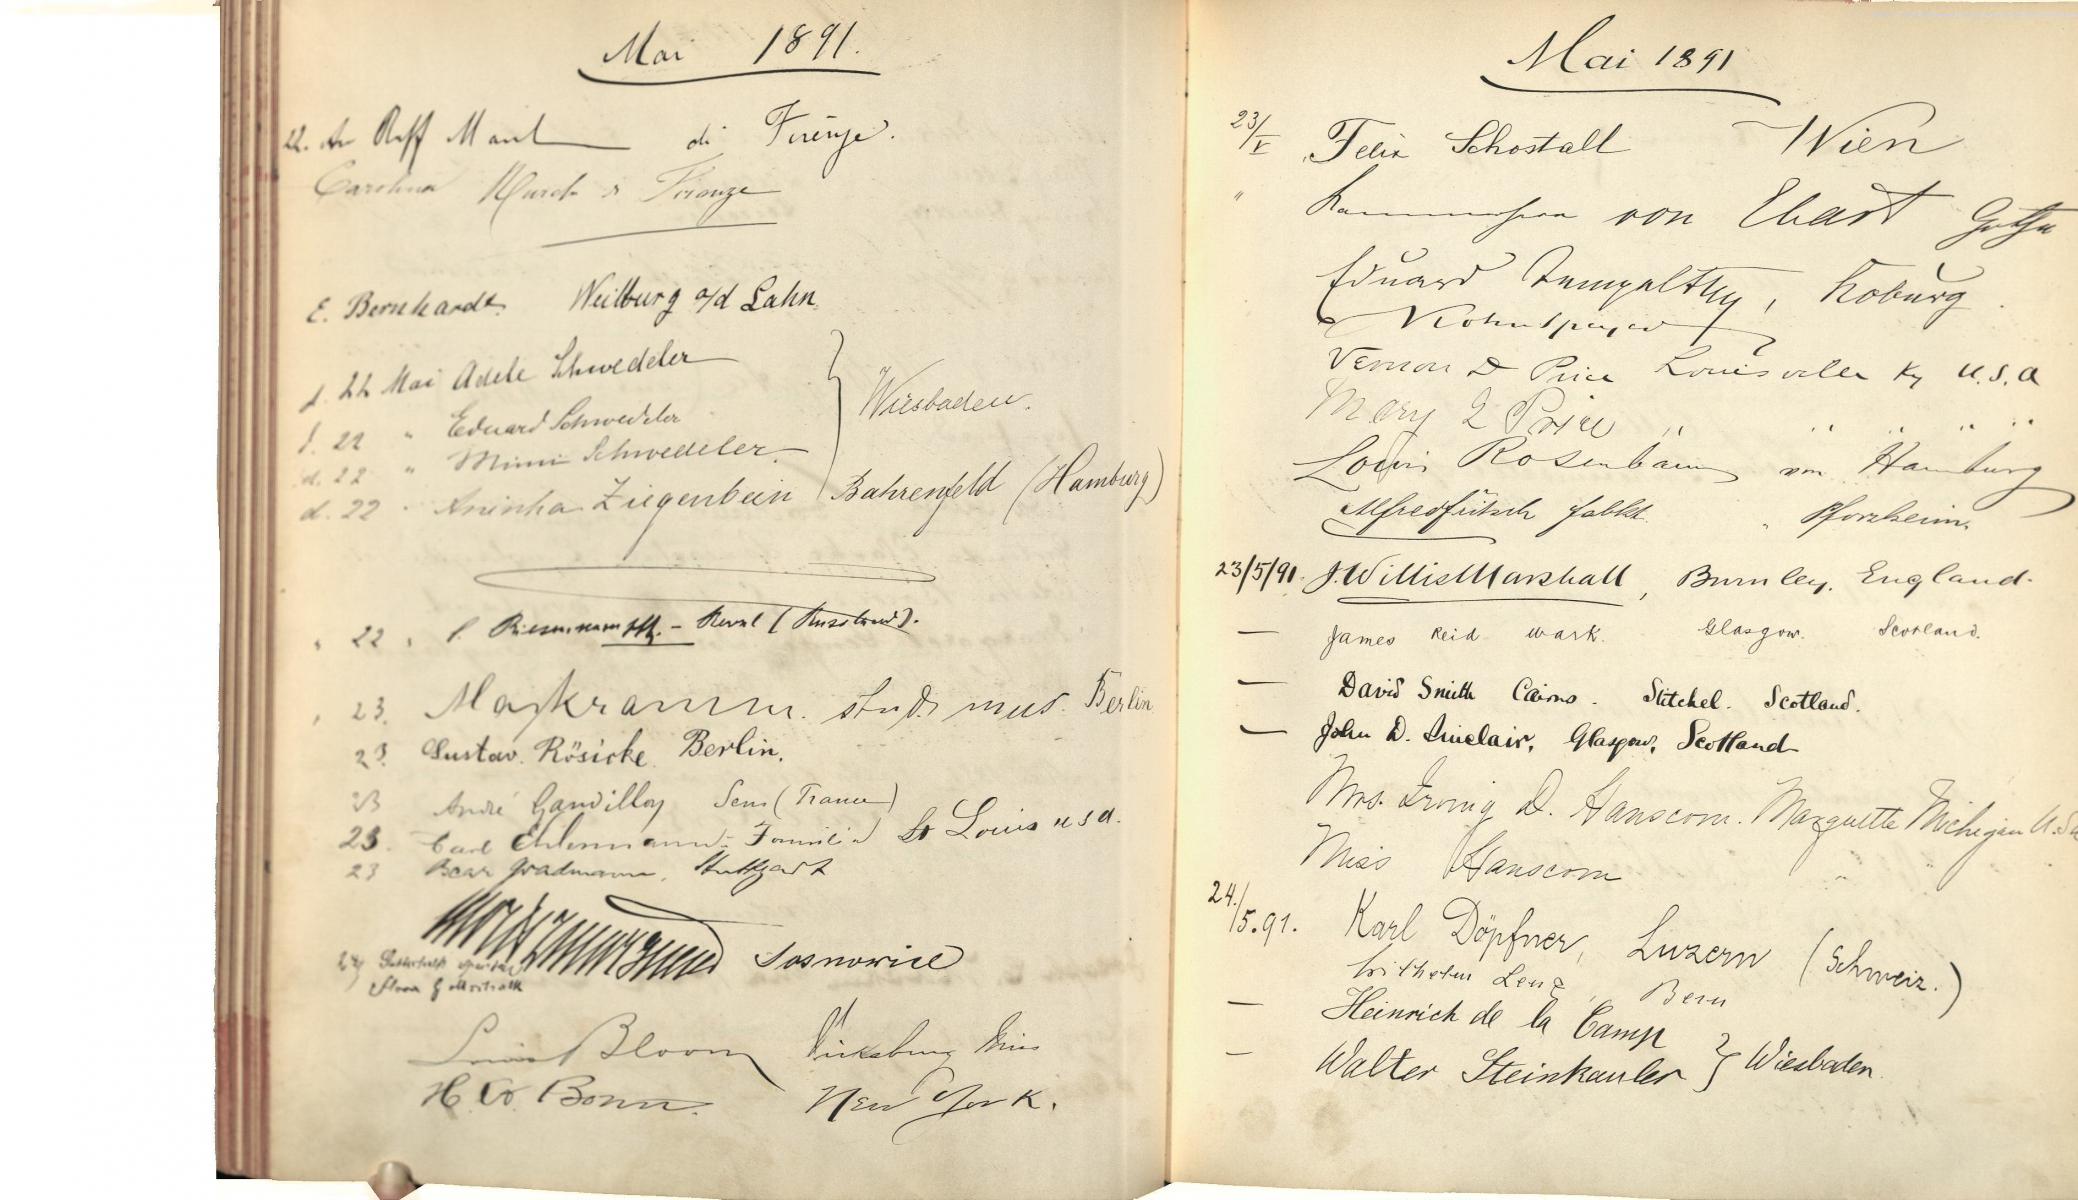 Mai 1891.
22. di Firenze.
Carolina Firenze
E. Bernhardt. Weilburg a/d Lahn.
d. 22 Mai Adele Schwedeler
d. 22 " Eduard Schwedeler
Wiesbaden.
d. 22 " Mimi Schwedeler.
d. 22 " Aninha Ziegenbein Bahrenfeld (Hamburg)
" 22 " Reval (Russland).
" 23. stud. mus. Berlin
23. Gustav Rösicke Berlin.
23 André Gauvilloy Sens (France)
23. Carl Ehlermann Familie St Louis U S A.
23 Gradmann, Stuttgart
24 Sosnowice
Louis Bloom Vicksburg Miss
H. W. Bonn. New York.
Mai 1891
23/V Felix Schostall Wien
" Kammerherr von Ebart Gotha
Eduard Tempeltey, Koburg.
Vernon D Price Louisville Ky U.S.A
Mary Q Price " " " " "
Louis Rosenbaum von Hamburg
Alfred Fütsch fabkt. " Pforzheim.
23/5/91. J. Willis Marshall, Burnley. England.
— James Reid Wark. Glasgow. Scotland.
— David Smith Cairns. Stitchel. Scotland.
— John D. Sinclair, Glasgow, Scotland
Mrs. Irving D. Hanscom. Marquette Michigan U.S.A
Miss Hanscom " "
24./5.91. Karl Döpfner, Luzern (Schweiz.)
Wilhelm Lenz, Bern
— Heinrich de la Camp
— Walter Steinkauler } Wiesbaden.